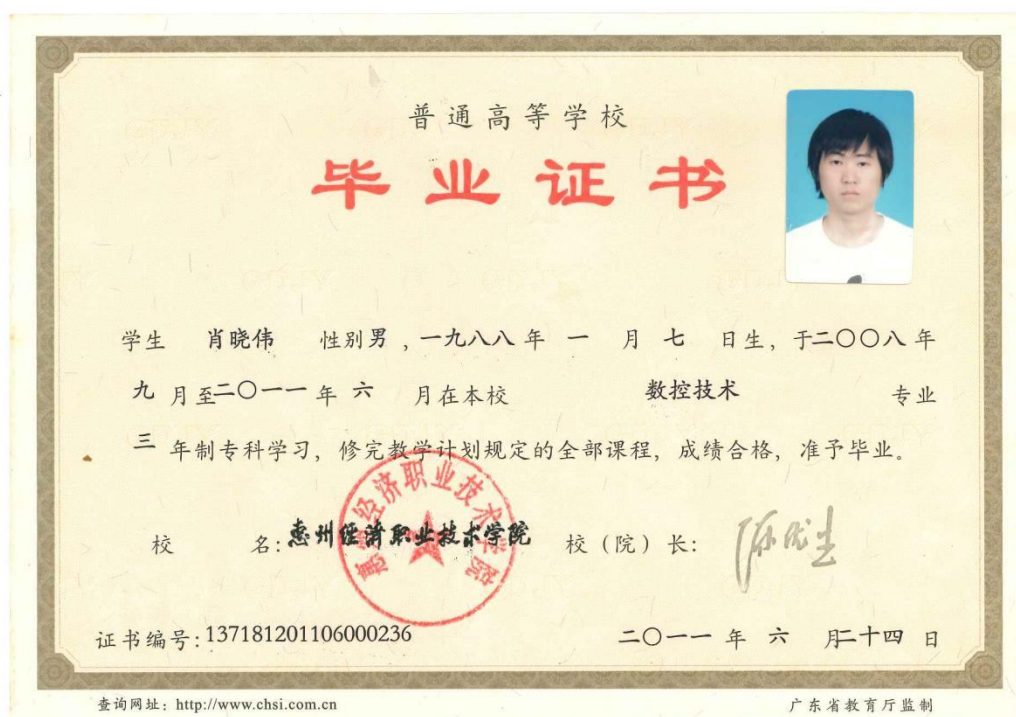 普通高等学校
毕业证书
学生 肖晓伟 性别男，一九八八年 一 月 七 日生，于二〇〇八年
九月至二〇一一年 六 月在本校 数控技术 专业
三 年制专科学习，修完教学计划规定的全部课程，成绩合格，准予毕业。
惠州经济职业技术学院
校 名：惠州经济职业技术学院 校（院）长：
证书编号：137181201106000236 二〇一一 年 六 月二十四 日
查询网址：http://www.chsi.com.cn 广东省教育厅监制